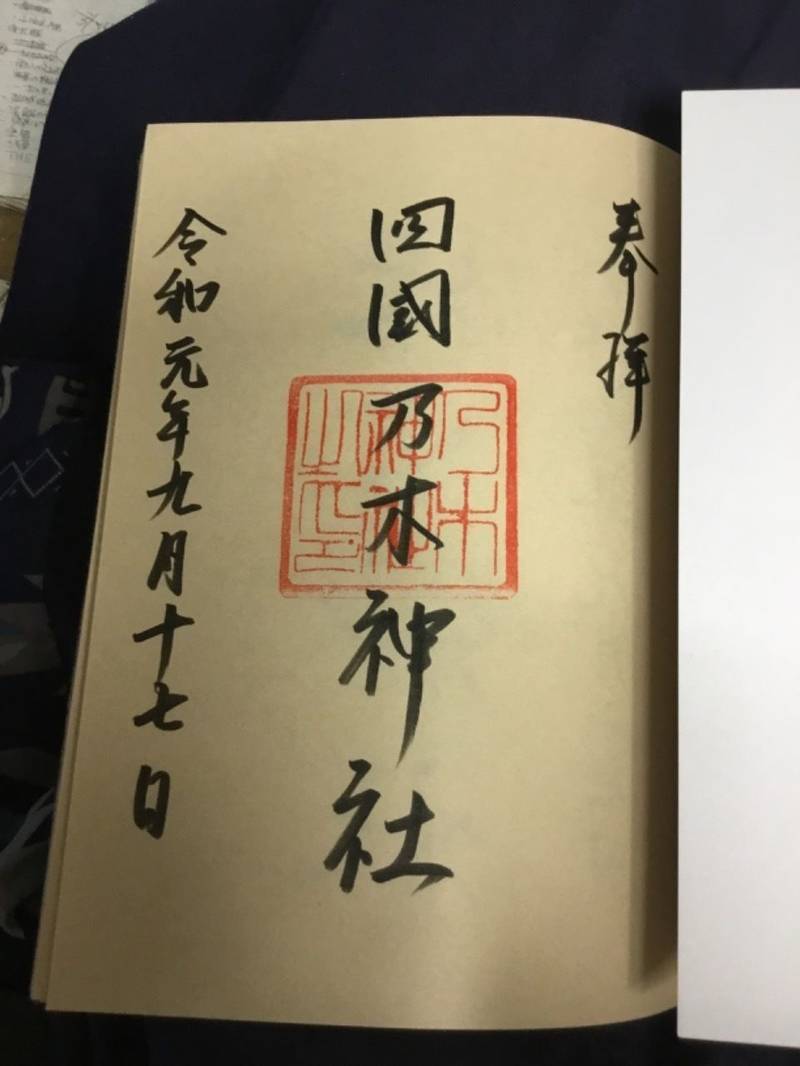 奉拝
四國乃木神社
乃木
神社
之印
令和元年九月十七日